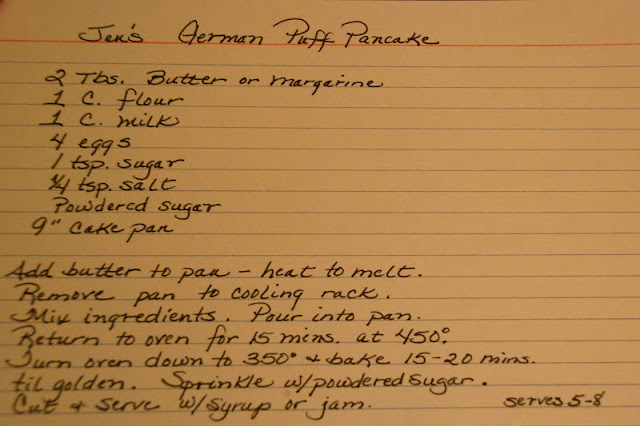 Jen's German Puff Pancake
2 Tbs. Butter or margarine
1 C. flour
1 C. milk
4 eggs
1 tsp. sugar
1/4 tsp. salt
Powdered sugar
9" cake pan
Add butter to pan - heat to melt.
Remove pan to cooling rack.
Mix ingredients. Pour into pan.
Return to oven for 15 mins. at 450°.
Turn oven down to 350° & bake 15-20 mins.
til golden. Sprinkle w/powdered sugar.
Cut & serve w/syrup or jam. serves 5-8